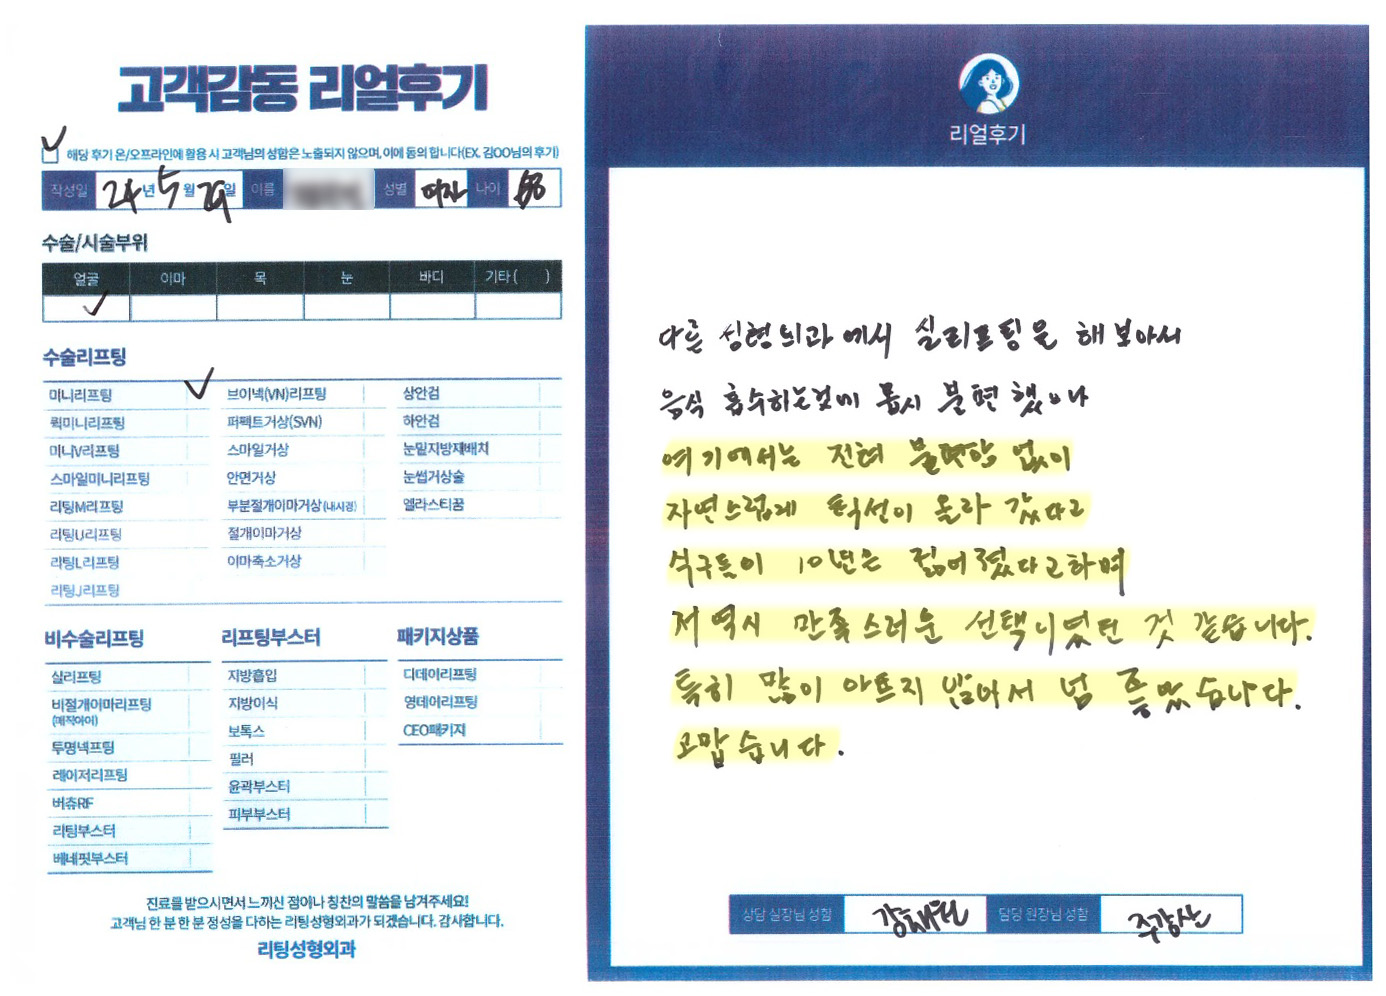 고객감동 리얼후기
해당 후기 온/오프라인에 활용 시 고객님의 성함은 노출되지 않으며, 이에 동의 합니다(EX. 김OO님의 후기)
작성일 24년 5월 29일 이름 성별 여자 나이
수술/시술부위
얼굴 이마 목 눈 바디 기타( )
수술리프팅
미니리프팅 브이넥(VN)리프팅 상안검
퀵미니리프팅 퍼펙트거상(SVN) 하안검
미니V리프팅 스마일거상 눈밑지방재배치
스마일미니리프팅 안면거상 눈썹거상술
리팅M리프팅 부분절개이마거상(내시경) 엘라스티꿈
리팅U리프팅 절개이마거상
리팅L리프팅 이마축소거상
리팅J리프팅
비수술리프팅 리프팅부스터 패키지상품
실리프팅 지방흡입 디데이리프팅
비절개이마리프팅 지방이식 영데이리프팅
(매직아이)
투명넥프팅 보톡스 CEO패키지
레이저리프팅 필러
버츄RF 윤곽부스터
리팅부스터 피부부스터
베네핏부스터
진료를 받으시면서 느끼신 점이나 칭찬의 말씀을 남겨주세요!
고객님 한 분 한 분 정성을 다하는 리팅성형외과가 되겠습니다. 감사합니다.
리팅성형외과
리얼후기
다른 성형외과에서 실리프팅을 해보아서
음식 흡수하는것이 몹시 불편했으나
여기에서는 전혀 불편함 없이
자연스럽게 턱선이 올라 갔다고
식구들이 10년은 젊어졌다고하며
저 역시 만족스러운 선택이었던 것 같습니다.
특히 많이 아프지 않아서 넘 좋았습니다.
고맙습니다.
상담 실장님 성함 담당 원장님 성함 주강산